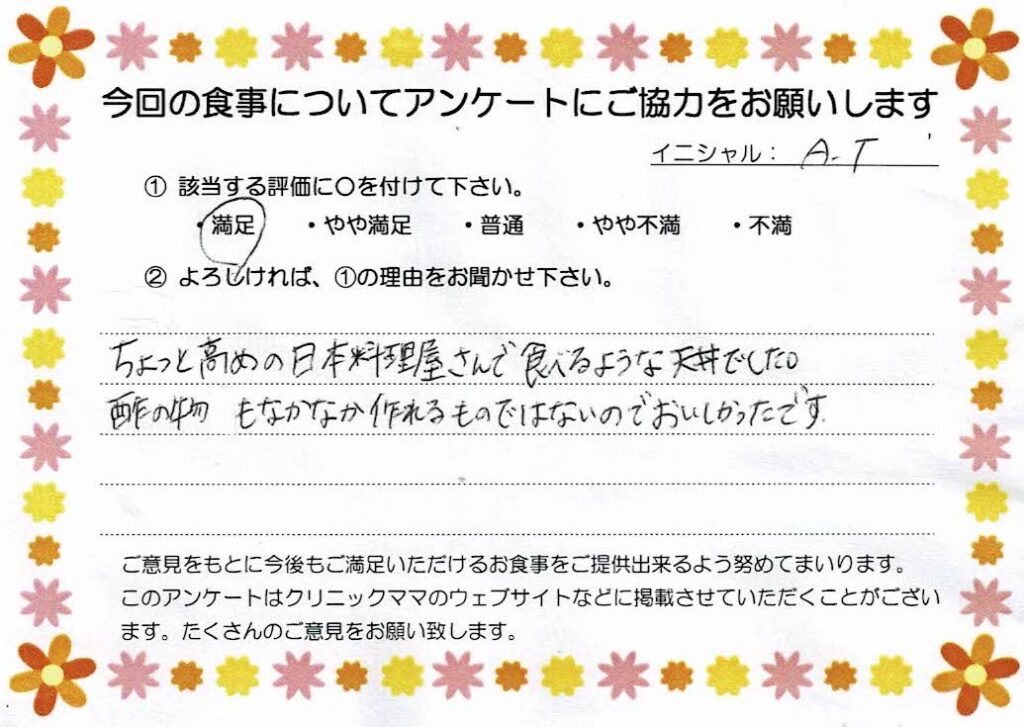 今回の食事についてアンケートにご協力をお願いします
イニシャル： A-T
① 該当する評価に〇を付けて下さい。
・満足 ・やや満足 ・普通 ・やや不満 ・不満
② よろしければ、①の理由をお聞かせ下さい。
ちょっと高めの日本料理屋さんで食べるような天丼でした。
酢の物 もなかなか作れるものではないのでおいしかったです.
ご意見をもとに今後もご満足いただけるお食事をご提供出来るよう努めてまいります。
このアンケートはクリニックママのウェブサイトなどに掲載させていただくことがござい
ます。たくさんのご意見をお願い致します。